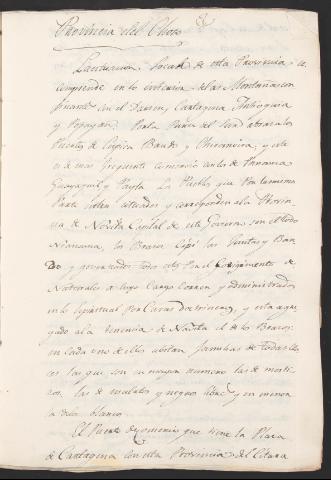 Provincia del Choco
La situacion local de esta Provincia se
comprende en lo interior de las Montañas con
finante con el Darien, Cartagena Antioquia
y Popayan. Por la Parte del Sur abraza los
Puertos de Cupica Baudo y Chirambira, y este
es de mas frequente comercio con los de Panama
Guayaquil y Payta. Los Pueblos que por la misma
Parte estan situados y corresponden a la Provin
cia de Novita Capital de este Govierno son el de
Noanama, los Brazos, Sipi, las Juntas y Bau
do y governados todos estos por el Corregimiento de
Naturales a cuyo cargo corren y administrados
en lo espiritual por Curas doctrineros, y esta agre
gado a la tenencia de Novita el de los Brazos:
en cada uno de ellos abitan familias de todas cla
ses las que son en mayor numero las de mesti
zos, las de mulatos y negros libres y en menor
la de los blancos.
El Puente de comercio que tiene la Plaza
de Cartagena con esta Provincia es del Citara